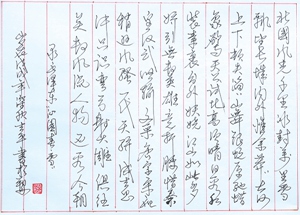 北國风光千里冰封万里雪
飘望长城内外惟余莽莽大河
上下顿失滔滔山舞银蛇原驰蜡
象欲与天公试比高须晴日看红
装素裹分外妖娆江山如此多
娇引无数英雄竞折腰惜秦
皇汉武略输文采唐宗宋祖
稍逊风骚一代天骄成吉思
汗只识弯弓射大雕俱往
矣数风流人物还看今朝
录毛泽东沁园春雪